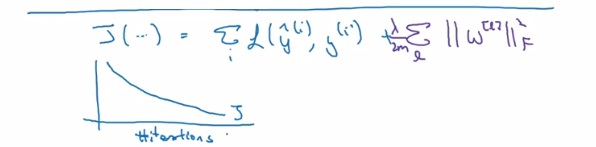 J(...) = Σ_i L(ŷ^(i), y^(i)) + λ/2m Σ_l ||w^[l]||²_F
J
#iterations